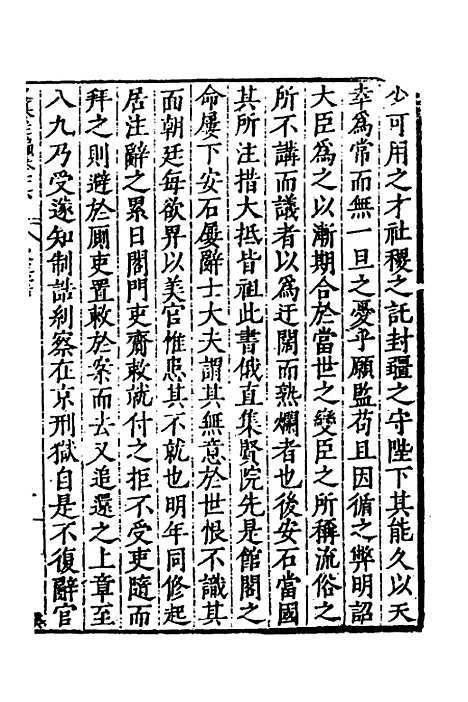 少可用之才社稷之託封疆之守陛下其能久以天
幸爲常而無一旦之憂乎願監苟且因循之弊明詔
大臣爲之以漸期合於當世之變臣之所稱流俗之
所不講而議者以爲迂闊而熟爛者也後安石當國
其所注措大抵皆祖此書俄直集賢院先是館閣之
命屢下安石屢辭士大夫謂其無意於世恨不識其
面朝廷每欲畀以美官惟患其不就也明年同修起
居注辭之累日閤門吏齎敕就付之拒不受吏隨而
拜之則避於厠吏置敕於案而去又追還之上章至
八九乃受遂知制誥糾察在京刑獄自是不復辭官